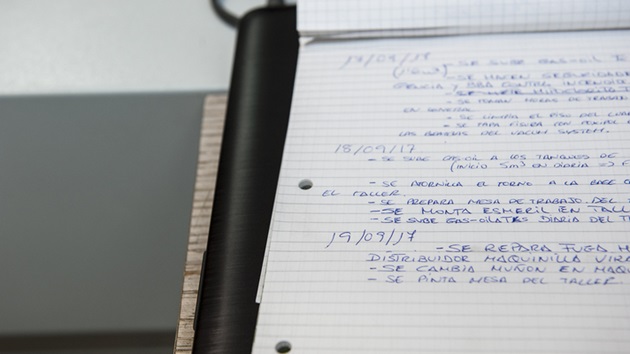 17/09/17 - SE SUBE GAS-OIL
(18m3) - SE HACEN SEGURIDADE
CONTRA INCENDIOS
- SE
- SE TOMAN HORAS DE TRABAJO
EN GENERAL
- SE LIMPIA EL PISO DEL
- SE TAPA FISURA CON
LAS BRIDAS DEL VACUM SYSTEM.
18/09/17
- SE SUBE GAS-OIL A LOS TANQUES DE
(INICIO 5m3) EN DIARIA =>
- SE ATORNILLA EL TORNO A LA BASE
EL TALLER.
- SE PREPARA MESA DE TRABAJO DEL
- SE MONTA ESMERIL EN TALL
- SE SUBE GAS-OIL A TKS DIARIA DEL
19/09/17
- SE REPARA FUGA
DISTRIBUIDOR MAQUINILLA VIRA
- SE CAMBIA MUÑON EN MAQ
- SE PINTA MESA DEL TALLER.